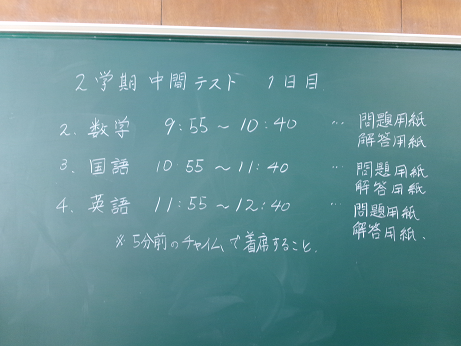 2学期 中間テスト 1日目
2. 数学 9:55～10:40 … 問題用紙
解答用紙
3. 国語 10:55～11:40 … 問題用紙
解答用紙
4. 英語 11:55～12:40 … 問題用紙
解答用紙.
※ 5分前のチャイムで着席すること.